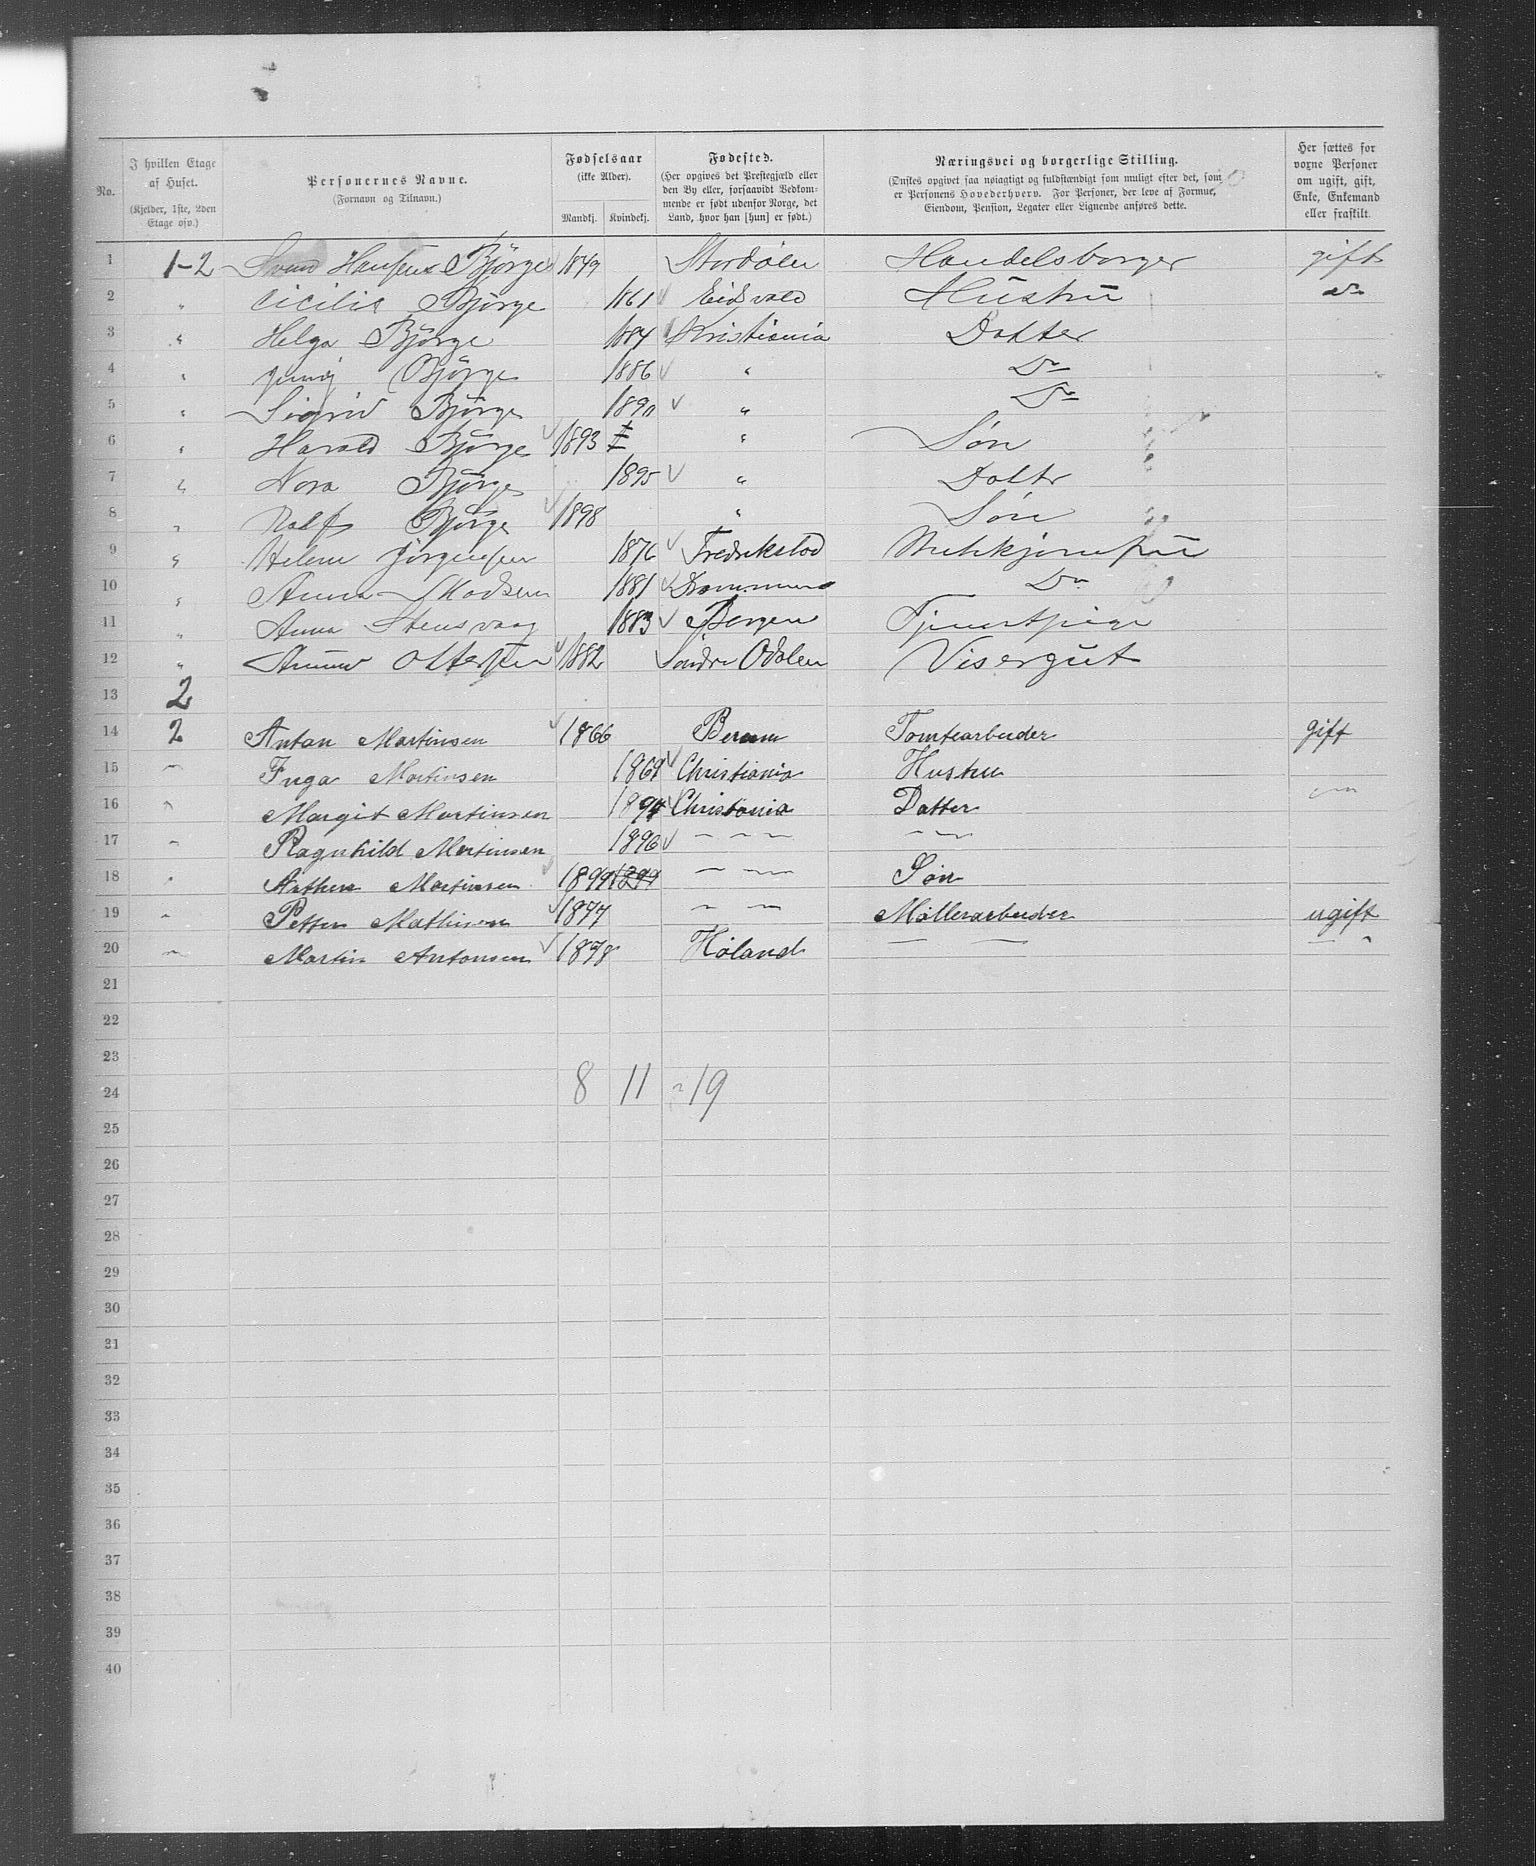 No. I hvilken Etage af Huset. (Kjelder, 1ste, 2den Etage osv.) Personernes Navne. (Fornavn og Tilnavn.) Fødselsaar (ikke Alder). Mandkj. Kvindekj. Fødested. (Her opgives det Præstegjæld eller den By eller, forsaavidt Vedkommende er født udenfor Norge, det Land, hvor han [hun] er født.) Næringsvei og borgerlige Stilling. (Ønskes opgivet saa nøiagtigt og fuldstændigt som muligt efter det, som er Personens Hovederhverv. For Personer, der leve af Formue, Eiendom, Pension, Legater eller Lignende anføres dette.) Her sættes for voxne Personer om ugift, gift, Enke, Enkemand eller fraskilt.
1 1-2 Hansen Bjørge 1849 Stordølen Handelsborger gift
2 " Cicilie Bjørge 1861 Eidsvold Hustru Do
3 " Helga Bjørge 1884 Kristiania Datter
4 " Bjørge 1886 " Do
5 " Sigrid Bjørge 1890 " Do
6 " Harald Bjørge 1893 " Søn
7 " Nora Bjørge 1895 " Dattr
8 " Rolf Bjørge 1898 " Søn
9 " Helene Jørgensen 1876 Fredrikstad
10 " Anna Madsen 1881 Drammen Do
11 " Anna Stensvaag 1883 Bergen Tjenestpige
12 " Ottersen 1882 Søndre Odalen Visergut
13 2
14 2 Anton Martinsen 1866 Berum Tomtearbeider gift
15 " Inga Martinsen 1869 Christiania Hustru
16 " Margit Martinsen 1894 Christania Datter
17 " Ragnhild Martinsen 1896 " "
18 " Arthur Martinsen 1899 1899 " Søn
19 " Petter Mathisen 1877 " Møllerarbeider ugift
20 " Martin Antonsen 1878 Høland " "
21
22
23
24 8 11 = 19
25
26
27
28
29
30
31
32
33
34
35
36
37
38
39
40